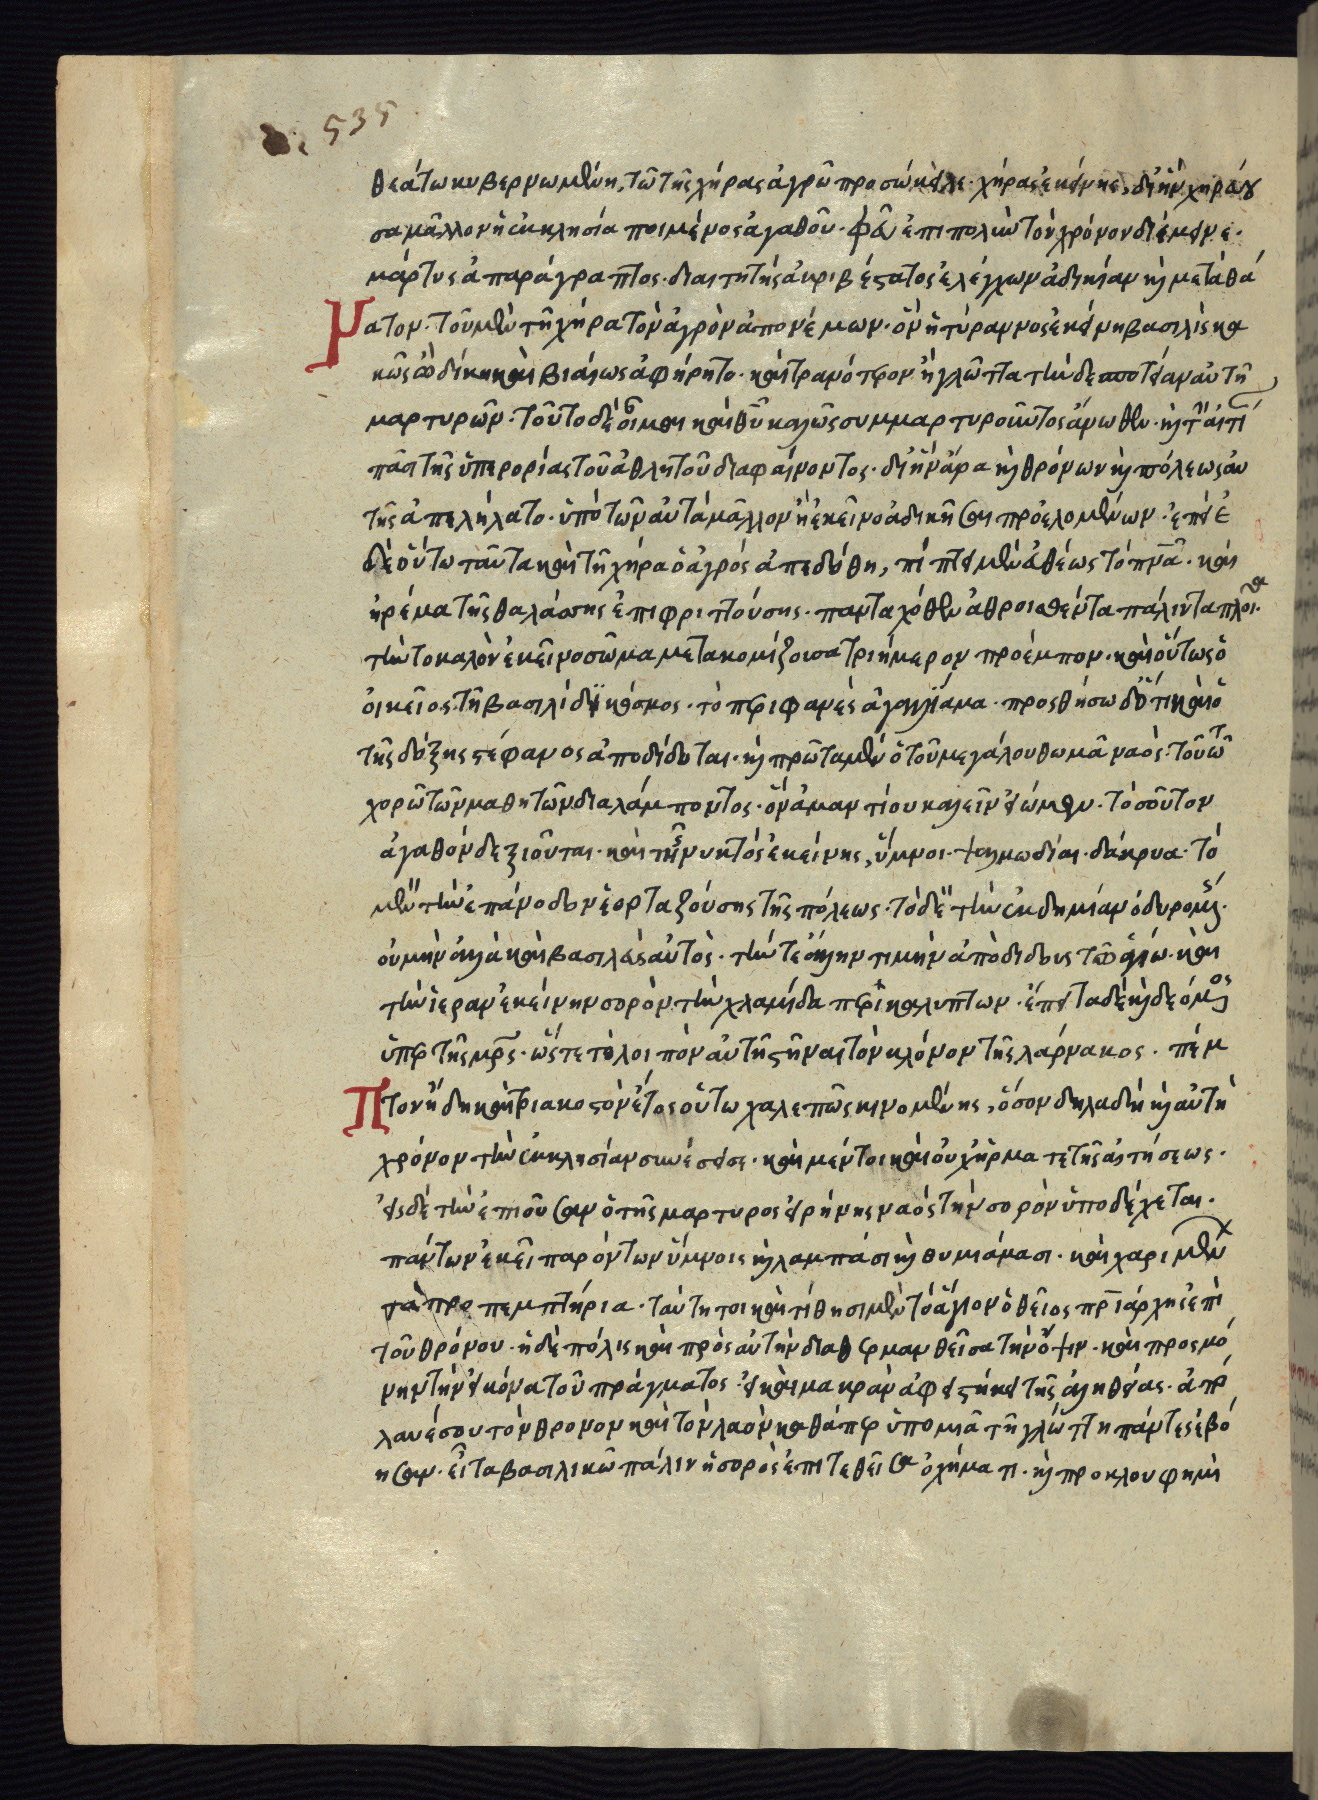 535
θεάτω κυβερνωμένη, τῶ τῆς χήρας ἀγρῶ προσώκειλε· χήρας ἐκείνης, δι ἣν χηρεύ
σα μᾶλλον ἡ ἐκκλησία ποιμένος ἀγαθοῦ· ἐπιπολὺν τὸν χρόνον διέμεινε·
μάρτυς ἀπαράγραπτος· διαιτητὴς ἀκριβέστατος ἐλέγχων ἀδικίαν καὶ μετὰ θά
νατον· τοῦ μὲν τῆ χήρα τὸν ἀγρὸν ἀπονέμων· ὃν ἡ τύραννος ἐκείνη βασιλὶς κα
κῶς δίκη καὶ βιαίως ἀφήρητο· καὶ τρανότερον ἢ γλῶττα τὴν δεσποτείαν αὐτῆ
μαρτυρῶν· τοῦτο δὲ οἶμαι καὶ θεοῦ καλῶς συμμαρτυροῦντος ἄνωθεν· καὶ τὴν αἰτί
πᾶσι τῆς ὑπερορίας τοῦ ἀθλητοῦ διαφαίνοντος· δι ἣν ἄρα καὶ θρόνων καὶ πόλεως αὐ
τῆς ἀπελήλατο· ὑπὸ τῶν αὐτὰ μᾶλλον ἢ ἐκεῖνο ἀδικῆσαι προελομένων· ἐπεὶ
δὲ οὕτω ταῦτα καὶ τῆ χήρα ὁ ἀγρὸς ἀπεδόθη, πίπτει μὲν εὐθέως τὸ πνα· καὶ
ἠρέμα τῆς θαλάσσης ἐπιφριττούσης· πανταχόθεν ἀθροισθέντα πάλιν τὰ πλοῖα·
τὴν τὸ καλὸν ἐκεῖνο σῶμα μετακομίζουσα τριήμερον προέπεμπον· καὶ οὕτως ὁ
οἰκεῖος τῆ βασιλίδι κόσμος· τὸ περιφανὲς ἀγαλλίαμα· προσθήσω δ' ὅτι καὶ ὁ
τῆς δόξης στέφανος ἀποδίδοται· καὶ πρῶτα μὲν ὁ τοῦ μεγάλου θωμᾶ ναὸς· τοῦ τῶ
χορῶ τῶν μαθητῶν διαλάμποντος· ὃν ἀμαντίου καλεῖν εἰώθαμεν· τὸ σοῦτον
ἀγαθὸν δεξιοῦται· καὶ τῆς νυκτὸς ἐκείνης, ὕμνοι· ψαλμωδίαι· δάκρυα· τὸ
μὲν τὴν ἐπάνοδον ἑορταζούσης τῆς πόλεως· τὸ δὲ τὴν ἐκδημίαν ὀδυρομένης·
οὐ μὴν ἀλλὰ καὶ βασιλεὺς αὐτὸς· τήν τε ἄλλην τιμὴν ἀποδιδοὺς τῶ ἁγίω· καὶ
τὴν ἱερὰν ἐκείνην σορὸν τὴν χλαμύδα περικαλύπτων· ἔπειτα δὲ καὶ δεόμενος
ὑπὲρ τῆς μρς· ὥστε τὸ λοιπὸν αὐτῆς στῆναι τὸν κλόνον τῆς λάρνακος· πέμ
πτον ἤδη καὶ τριακοστὸν ἔτος οὕτω χαλεπῶς κινουμένης, ὅσον δηλαδὴ καὶ αὐτὴ
χρόνον τὴν ἐκκλησίαν συνέσεισε· καὶ μέντοι καὶ οὐχ ἥμαρτε τῆς αἰτήσεως·
εἰς δὲ τὴν ἐπιοῦσαν ὁ τῆς μάρτυρος εἰρήνης ναὸς τὴν σορὸν ὑποδέχεται·
πάντων ἐκεῖ παρόντων ὕμνοις καὶ λαμπάσι καὶ θυμιάμασι· καὶ χαρι μὲν
τὰ προπεμπτήρια· ταύτη τοι καὶ τίθησι μὲν τὸ ἅγιον ὁ θεῖος πριάρχης ἐπὶ
τοῦ θρόνου· ἡ δὲ πόλις καὶ πρὸς αὐτὴν διαθερμανθεῖσα τὴν ὄψιν· καὶ προς μό
νην τὴν εἰκόνα τοῦ πράγματος· εἰ καὶ μακρὰν ἀφειστήκει τῆς ἀληθείας· ἀπό
λαυέ σου τὸν θρόνον καὶ τὸν λαὸν καθάπερ ὑπὸ μιᾶ τῆ γλώττη πάντες ἐβό
ησαν· εἶτα βασιλικῶ πάλιν ἡ σορὸς ἐπιτεθεῖσα ὀχήματι· καὶ πρόκλου φημὶ